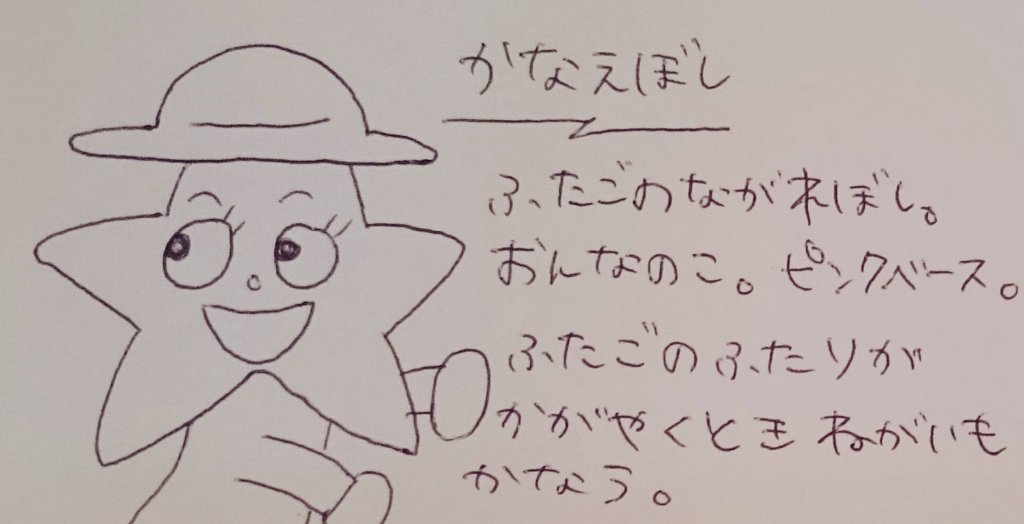 かなえぼし
ふたごのながれぼし。
おんなのこ。ピンクベース。
ふたごのふたりが
かがやくとき ねがいも
かなう。